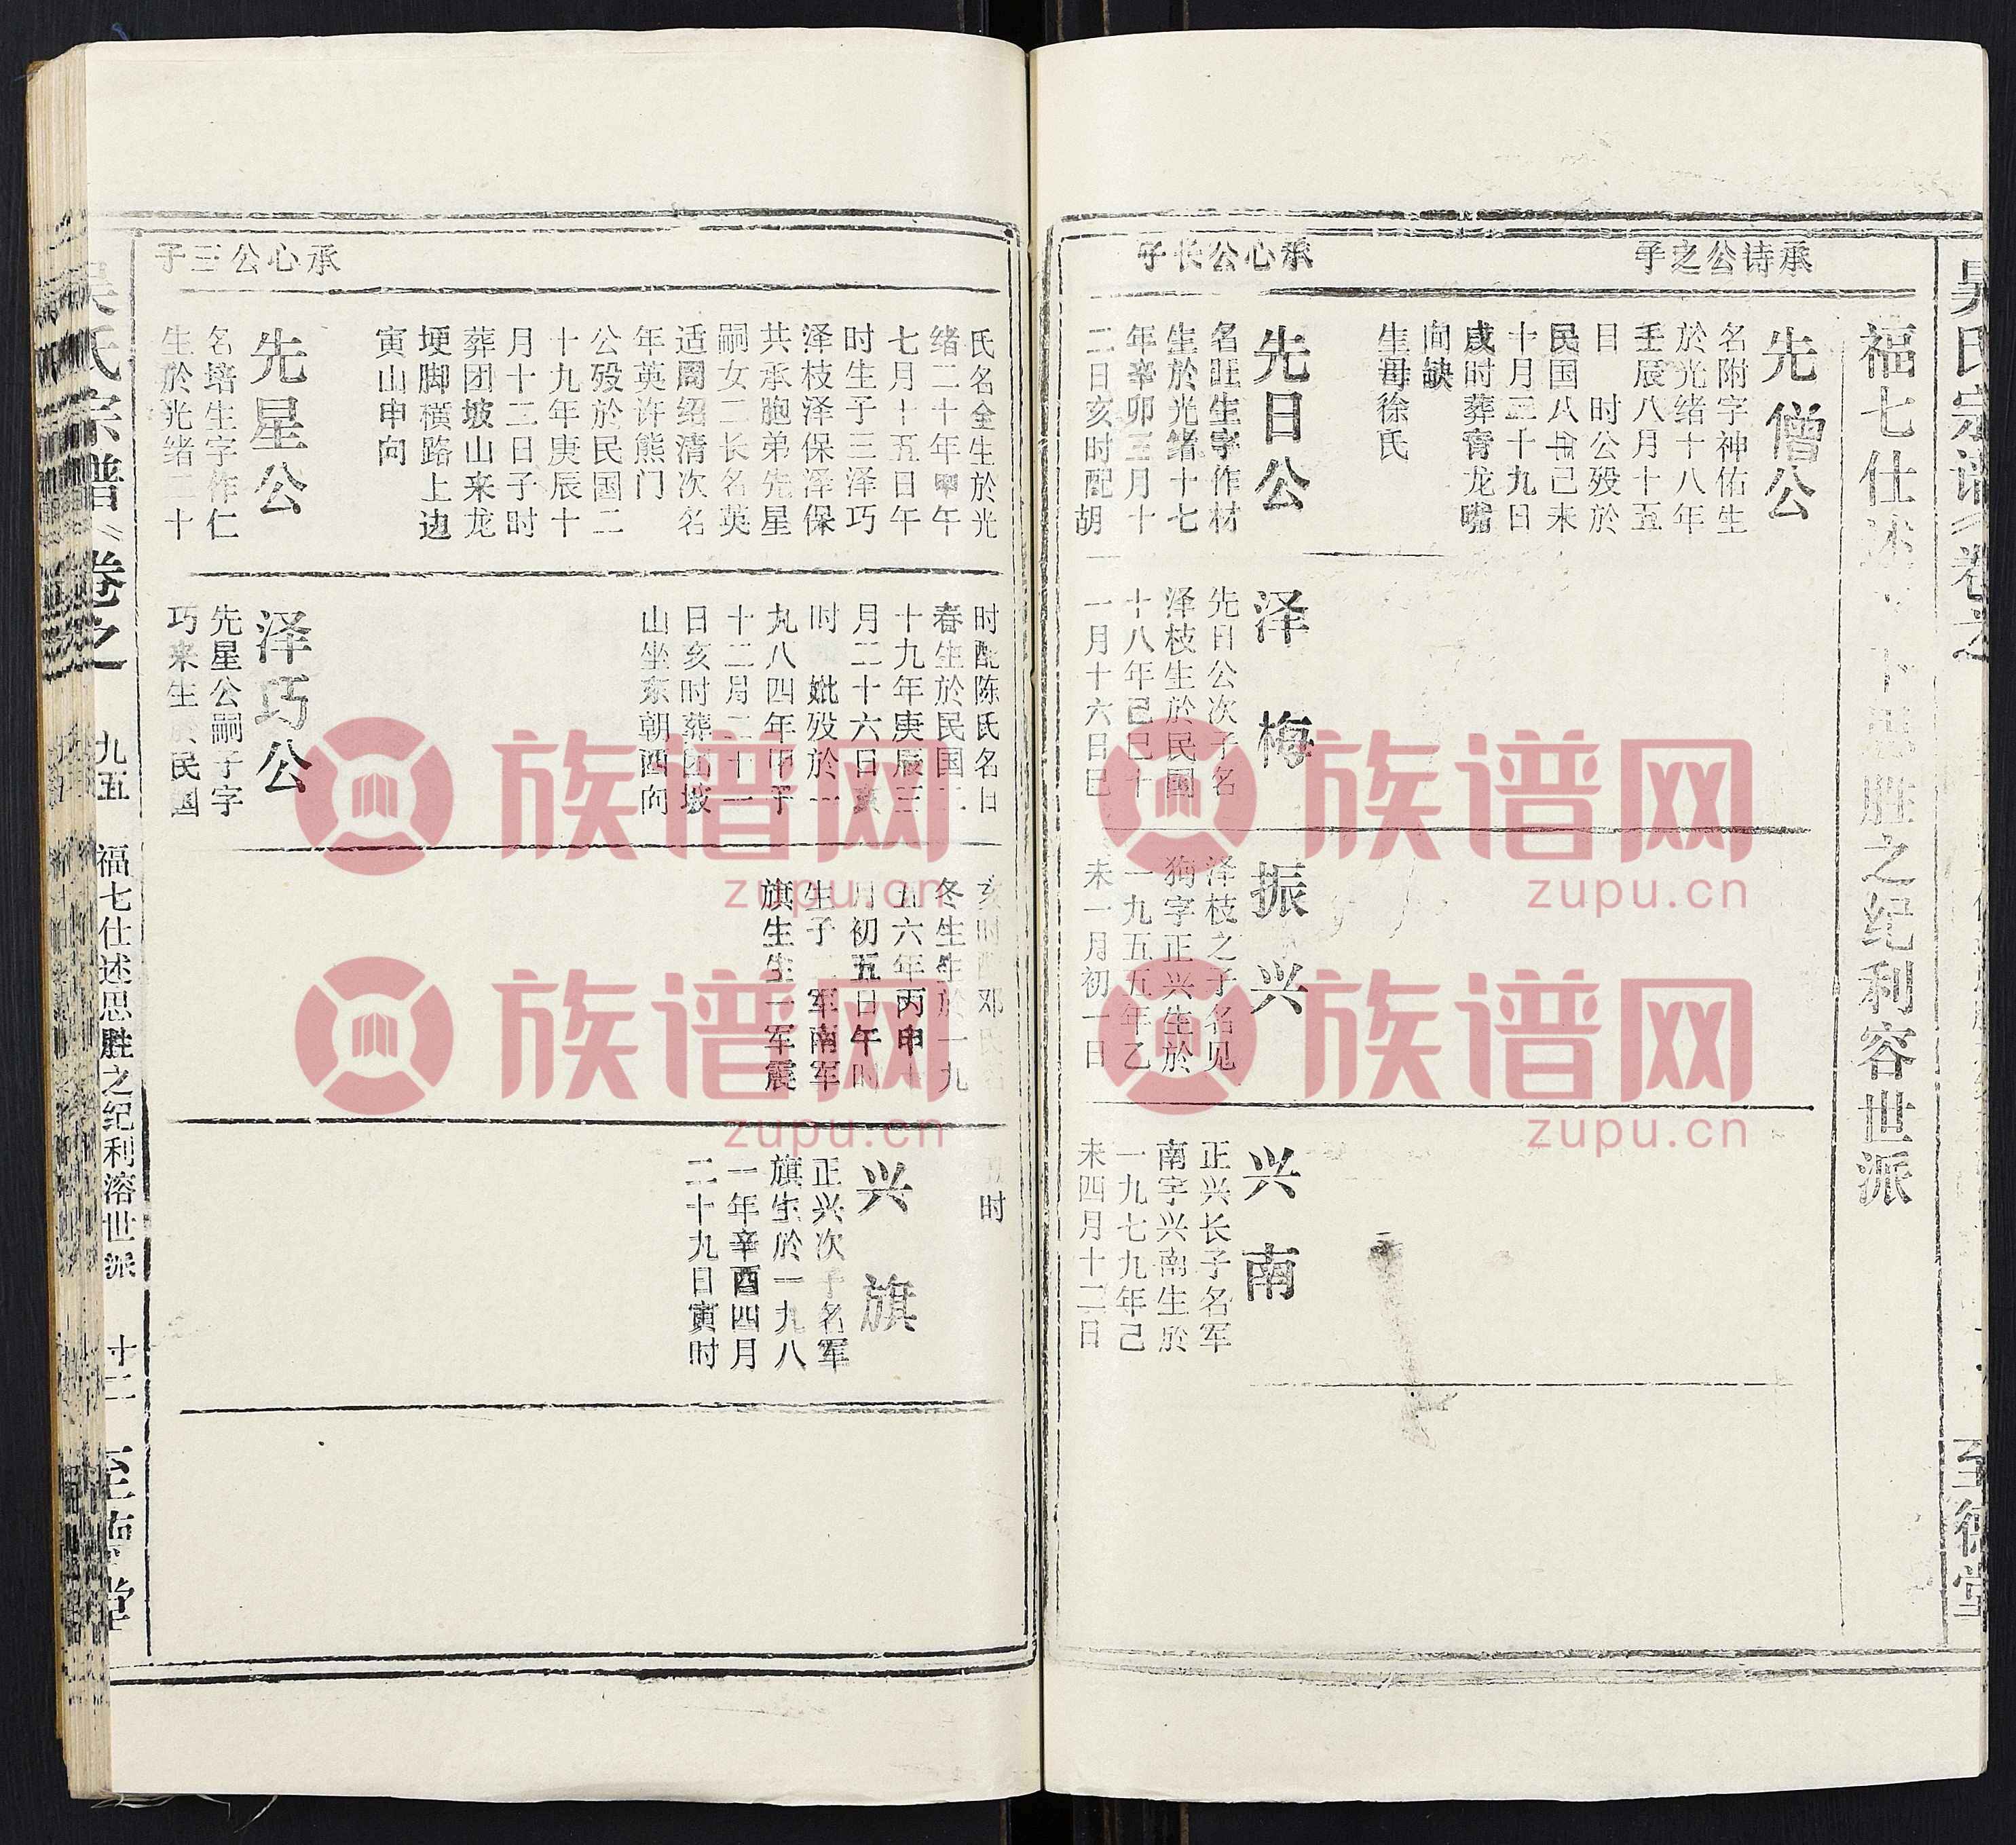 福七仕述
胜之纪利容世派
承诗公之子
先僧公
名附字神佑生
於光绪十八年
壬辰八月十五
日 时公殁於
民国八年己未
十月三十九日
戌时葬膏龙嘴
间缺
生母徐氏
承心公长子
先日公
名旺生字作材
生於光绪十七
年辛卯三月十
二日亥时配胡
泽梅
先日公次子名
泽枝生於民国
十八年己巳十
一月十六日巳
振兴
泽枝之子名见
狗字正兴生於
一九五五年乙
未一月初一日
兴南
正兴长子名军
南字兴南生於
一九七九年己
未四月十二日
至德堂
氏名全生於光
绪二十年甲午
七月十五日午
时生子三泽巧
泽枝泽保泽保
共承胞弟先星
嗣女二长名英
适阔绍清次名
年英许熊门
公殁於民国二
十九年庚辰十
月十二日子时
葬团坡山来龙
埂脚横路上边
寅山申向
时配陈氏名日
春生於民国二
十九年庚辰三
月二十六日亥
时 妣殁於一
九八四年甲子
十二月二十一
日亥时葬团坡
山坐东朝西向
亥时 邓
冬生生於一九
五六年丙申
月初五日午时
生子二军南军
旗生生一军震
时
兴旗
正兴次子名军
旗生於一九八
一年辛酉四月
二十九日寅时
承心公三子
先星公
名培生字作仁
生於光绪二十
泽巧公
先星公嗣子字
巧来生於民国
吴氏宗谱《卷之 九五 福七仕述思胜之纪利溶世派 十二 至德堂
族谱网
zupu.cn
族谱网
zupu.cn
族谱网
zupu.cn
族谱网
zupu.cn